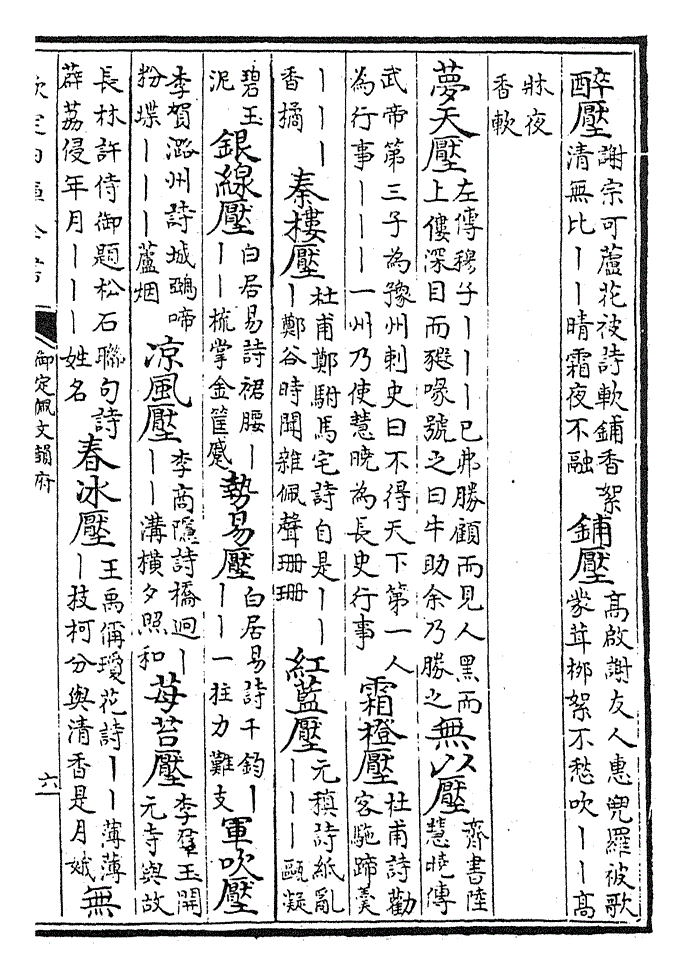 醉壓 謝宗可蘆花被詩軟鋪香絮清無比丨丨晴霜夜不融 鋪壓 高啟謝友人惠兜羅被歌蒙茸栁絮不愁吹丨丨高
牀夜香軟
夢天壓 左傳穆子丨丨丨已弗勝顧而見人黑而上僂深目而豭喙號之曰牛助余乃勝之 無以壓 齊書陸慧曉傳
武帝第三子為豫州刺史曰不得天下第一人為行事丨丨丨一州乃使慧曉為長史行事 霜橙壓 杜甫詩勸客駞蹄羹
丨丨丨香橘 秦樓壓 杜甫鄭駙馬宅詩自是丨丨丨鄭谷時聞雜佩聲珊珊 紅藍壓 元稹詩紙亂丨丨丨甌凝
碧玉泥 銀線壓 白居易詩裙腰丨丨丨梳掌金筐蹙 勢易壓 白居易詩千鈞丨丨丨一拄力難支 軍吹壓
李賀潞州詩城鵶啼粉堞丨丨丨蘆烟 凉風壓 李商隱詩橋迥丨丨丨溝橫夕照和 莓苔壓 李羣玉開元寺與故
長林許侍御題松石聯句詩薜荔侵年月丨丨丨姓名 春冰壓 王禹偁瓊花詩丨丨薄薄丨枝柯分與清香是月娥 無
欽定四庫全書 御定佩文韻府 六